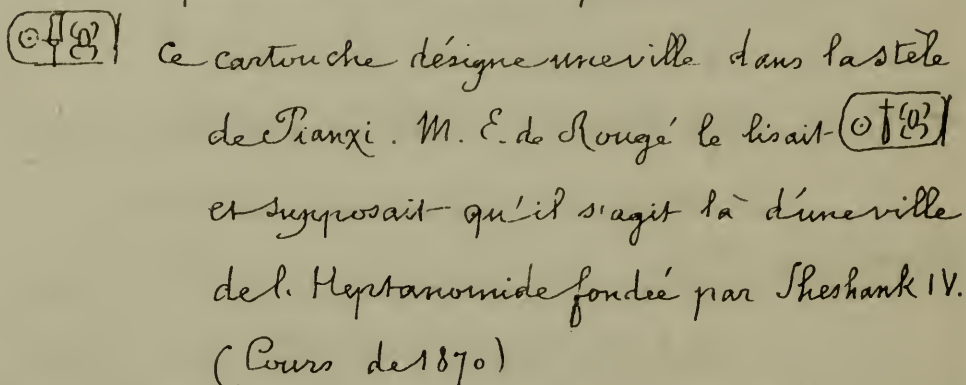 Ce cartouche désigne une ville dans la stèle
de Pianχi. M. E. de Rougé le lisait
et supposait qu'il s'agit là d'une ville
de l'Heptanomide fondée par Sheshank IV.
(Cours de 1870)